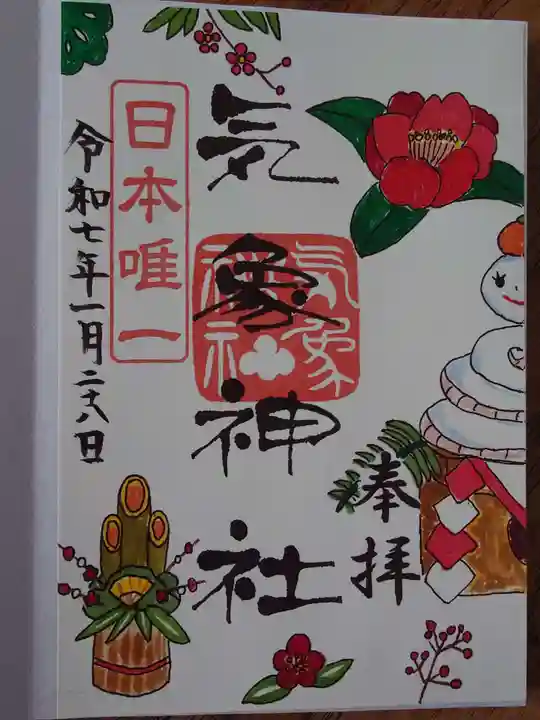 奉拝
気象神社
気象
神社
日本唯一
令和七年一月二十八日